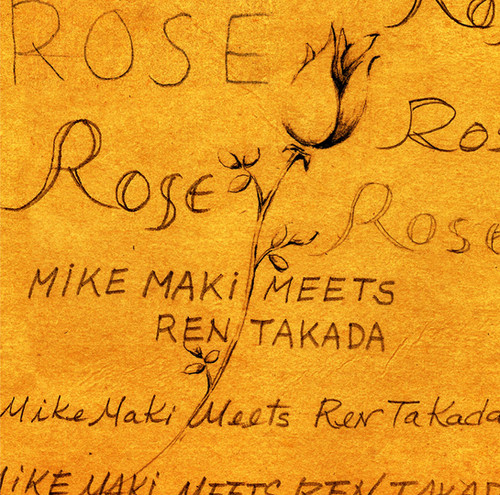 ROSE
Ro
Rose
Ros
Rose
MiKE MAKi MEETS
REN TAKADA
Mike Maki Meets Ren Takada
MiKE MAKi MEETS REN TAKAD